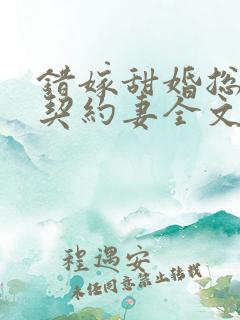 错嫁甜婚总
契约妻全文
程遇安
未经同意禁止转载